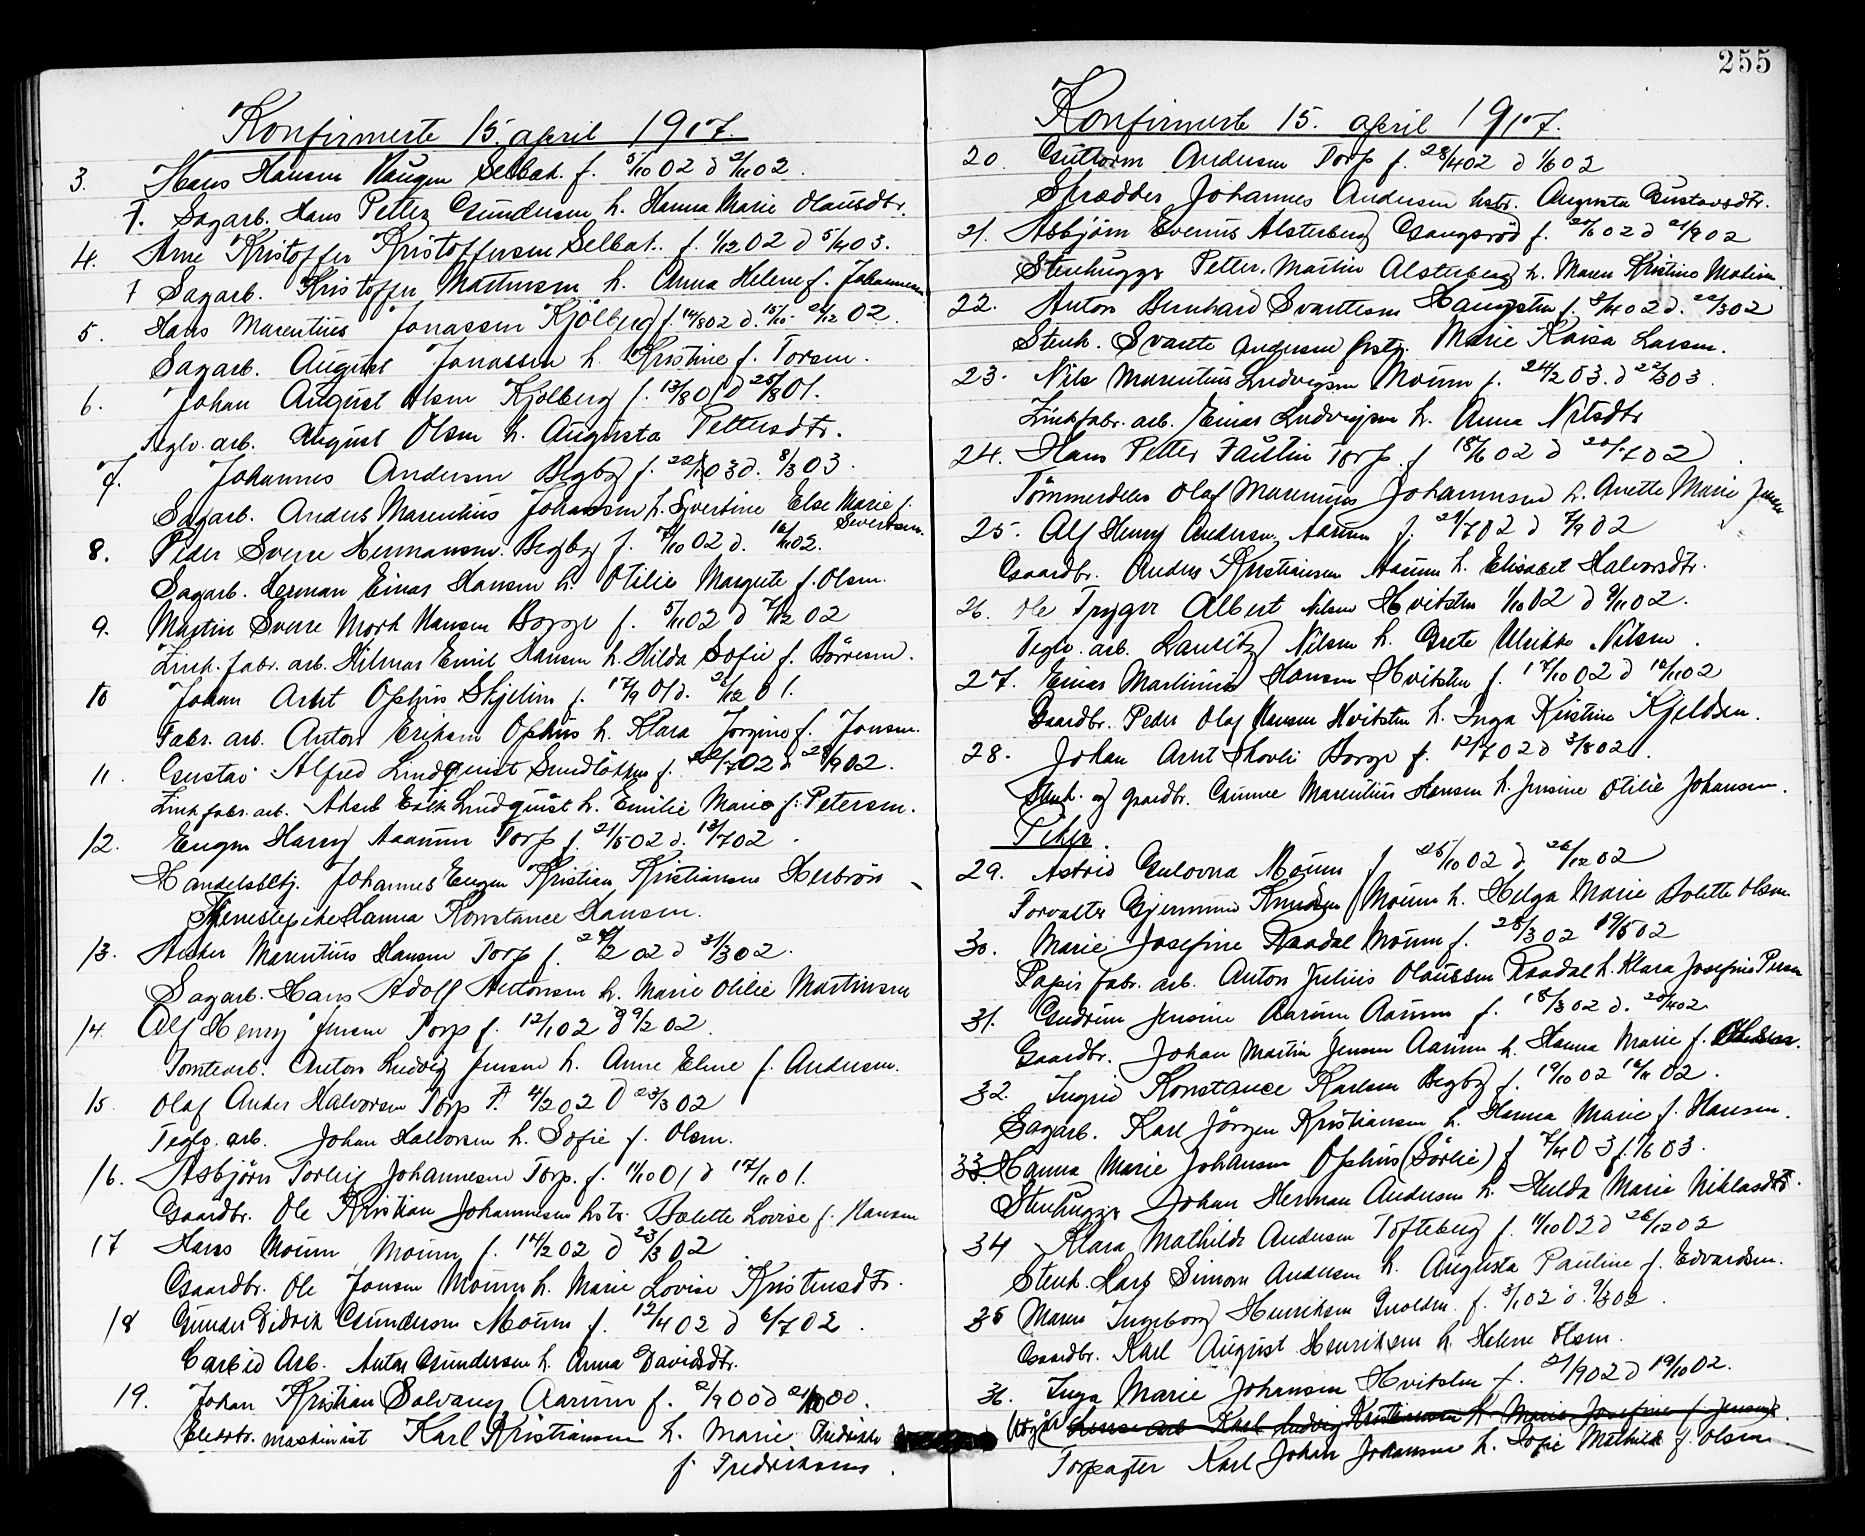 Konfirmerte 15. april 1917.
3. Hans Hansen Haugen Selbak. f. 5/10 02 d 2/11 02.
F. Sagarb. Hans Petter Gundersen h. Hanna Marie Olausdtr.
4. Arne Kristoffer Kristoffersen Selbak. f. 1/12 02 d 5/4 03.
F Sagarb. Kristoffer Martinsen h. Anna Helene f. Johannesen
5. Hans Marentius Jonassen Kjölberg f. 14/8 02 d. 02.
Sagarb. August Jonassen h. Kristine f. Torsen.
6. Johan August Olsen Kjølberg f. 13/8 01 d 25/8 01.
Teglv. arb. August Olsen h. Augusta Pettersdtr.
7. Johannes Andersen Begby f. 22/1 03 d. 8/3 03.
Sagarb. Anders Marentius Johansen h. Syvertine Else Marie f.
Sivertsen.
8. Peder Sverre Hermansen Begby f. 7/10 02 d. 16/11 02.
Sagarb. Herman Einar Hansen h. Otilie Margrete f. Olsen.
9. Martin Sverre Mork Hansen Borge f. 5/11 02 d 7/12 02
Zink. fabr. arb. Hilmar Emil Hansen h. Hilda Sofie f. Börresen.
10 Johan Arnt Ophus Skjelin f. 17/9 01 d. 01.
Fabr. arb. Anton Eriksen Ophus h. Klara Jorgine f. Jonsen.
11. Gustav Alfred Lindquist Sundlökken f. 22/7 02 d 28/9 02.
Zink fabr. arb. Aksel Erik Lindquist h. Emilie Marie f. Petersen.
12. Eugen Harry Aarum Torp f. 21/5 02 d. 13/7 02.
Handelsbetj. Johannes Eugen Kristian Kristiansen Herbrön
Tjenestepike Hanna Konstance Hansen.
13. Marentius Hansen Torp f. 24/2 02 d 31/3 02.
Sagarb. Hans Adolf Antonsen h. Marie Otilie Martinsen
14. Alf Henry Jensen Torp f. 12/1 02 d 9/2 02.
Tomtearb. Anton Ludvig Jensen h. Anne Eline f. Andersen.
15. Olaf Anders Halvorsen Torp F. 4/2 02 d 23/3 02
Teglv. arb. Johan Halvorsen h. Sofie f. Olsen.
16. Asbjörn Torleif Johannesen Torp. f. 11/10 01 d 17/11 01.
Gaardbr. Ole Kristian Johannesen hstr. Bolette Lovise f. Hansen
17 Hans Moum Moum f. 14/2 02 d 23/3 02.
Gaardbr. Ole Jonsen Moum h. Marie Lovise Kristensdtr.
18 Gunder Didrik Gundersen Moum f. 12/4 02 d 6/7 02.
Carbid Arb. Anton Gundersen h. Anna Davidsdtr.
19. Johan Kristian Solvang Aarum f. 2/9 00 d 21/10 00.
Elektr. maskinist Karl Kristiansen h. Marie Fredrikke
f. Fredriksens.
255
Konfirmerte 15. april 1917.
20. Guttorm Andersen Torp f. 28/4 02 d 1/6 02
Skrædder Johannes Andersen hstr. Augusta Gustavsdtr.
21. Asbjörn Evenus Alsterberg Gangsröd f. 02 d 21/9 02
Stenhugger Petter Martin Alsterberg h. Maren Kristine Madsen.
22. Anton Bernhard Svantesen f. 02 d. 22/3 02
Stenh. Svante Andersen hstr. Marie Kaisa Larsen.
23. Nils Marentius Ludvigsen Moum f. 24/2 03. d 22/3 03.
Zinkfabr. arb. Einar Ludvigsen h. Anna Nilsdtr
24. Hans Petter Faustin Torp f 18/6 02 d 20/7 02.
Tömmerdeler Olaf Marenius Johannesen h. Anette Marie Jensen
25. Alf Henry Andersen Aarum f. 29/7 02 d 7/9 02
Gaardbr. Anders Kristiansen Aarum h. Elisabet Halvorsdtr.
26. Ole Trygve Albert Nilsen Hvitsten 1/10 02 d 9/11 02.
Teglv. arb. Lauritz Nilsen h. Grete Ulrikke Nilsen.
27. Einar Martinius Hansen Hvitsten f. 17/10 02 d 16/11 02
Gaardbr. Peder Olaf Hansen Hvitsten h. Inga Kristine Kjeldsen.
28. Johan Arnt Skovli Borge f. 12/7 02 d 3/8 02.
Stenh. og gaardbr. Marentius Hansen h. Jensine Otilie Johansen.
Piker
29. Astrid Gulovna Moum f 25/10 02 d 26/12 02
Forvalter Gjermund Knudsen Moum h. Helga Marie Bolette Olsen.
30. Marie Josefine Raadal Moum f. 28/3 02 19/5 02
Papir fabr. arb. Anton Julius Olaussen Raadal h. Klara Josefine Persen
31. Gudrun Jensine Aarum Aarum f. 18/3 02 d. 20/4 02.
Gaardbr. Johan Martin Jensen Aarum h. Hanna Marie f.
32. Ingrid Konstance Karlsen Begby f. 19/10 02 16/11 02.
Sagarb. Karl Jörgen Kristiansen h. Hanna Marie f. Hansen.
33. Hanna Marie Johansen Ophus (Sörlie) f 7/4 03 1/6 03.
Stenhugger Johan Herman Andersen h. Hulda Marie Niklasdtr.
34 Klara Mathilde Andersen Tofteberg f. 11/10 02 d 26/12 02
Stenh. Lars Simon Andersen h. Augusta Pauline f. Edvardsen.
35 Maren Ingeborg Henriksen f. 3/1 02 d. 9/3 02.
Gaardbr. Karl August Henriksen h. Helene Olsen.
36. Inga Marie Johansen Hvitsten f. 21/9 02 d 19/10 02.
Karl Ludvig Kristiansen h. Marie Josefine f. Jensen.
Torpagter Karl Johan Johansen h. Sofie Mathilde f. Olsen.